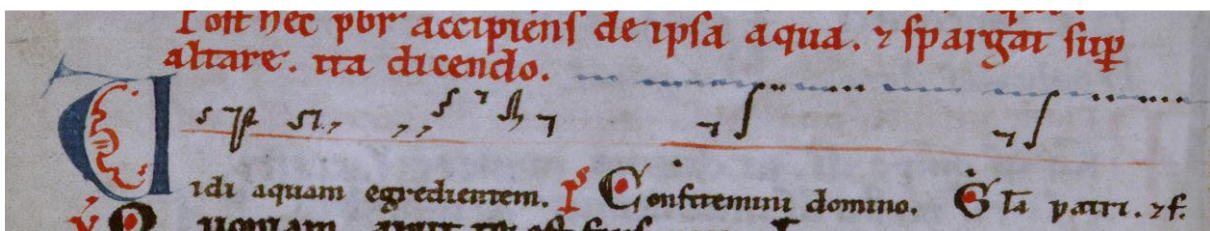 Post hec pbr accipiens de ipsa aqua. ⁊ spargat sup
altare. ita dicendo.
Vidi aquam egredientem. Ps Confitemini domino. Gla patri. ⁊ f.